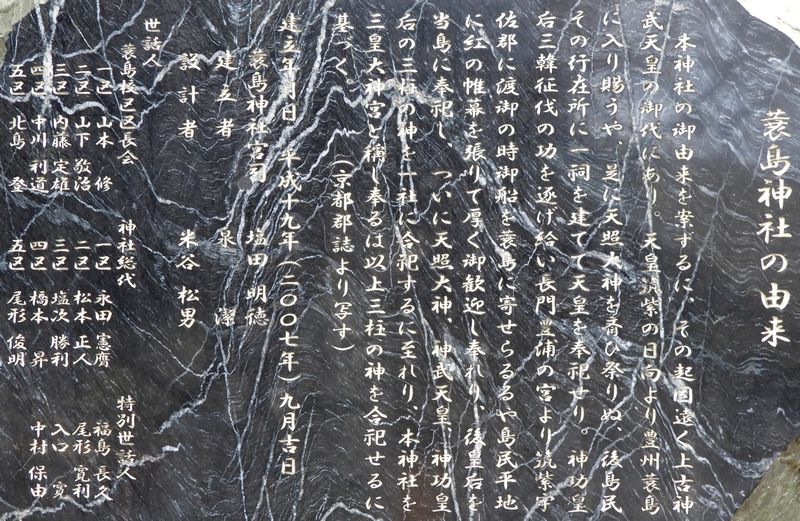 蓑島神社の由来
本神社の御由来を案ずるに、その起因遠く上古神
武天皇の御代にあり。天皇筑紫の日向より豊州蓑島
に入り賜うや、是に天照大神を斎ひ祭りぬ、後島民
その行在所に一祠を建てて天皇を奉祀せり。神功皇
后三韓征伐の功を遂げ給い長門豊浦の宮より筑紫宇
佐郡に渡御の時御船を蓑島に寄せらるるや島民平地
に紅の帷幕を張りて厚く御歓迎し奉れり、後皇后を
当島に奉祀し、ついに天照大神、神武天皇、神功皇
后の三柱の神を一社に合祀するに至れり、本神社を
三皇大神宮と称し奉るは以上三柱の神を合祀せるに
基づく。 (京都郡誌より写す)
建立年月日 平成十九年(二〇〇七年)九月吉日
蓑島神社宮司 塩田 明徳
建立者 泉 潔
設計者 米谷 松男
世話人
蓑島校区区長会 神社総代 特別世話人
一区 山本 修 一区 永田 憲 福島 長久
二区 山下 敬治 二区 松本 正人 尾形 寛利
三区 内藤 定雄 三区 塩次 勝利 入口 寛
四区 中川 利道 四区 橋本 昇 中村 保由
五区 北島 登 五区 尾形 俊明